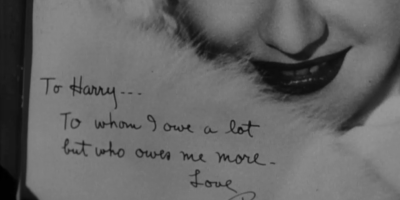 To Harry---
To whom I owe a lot
but who owes me more-
Love